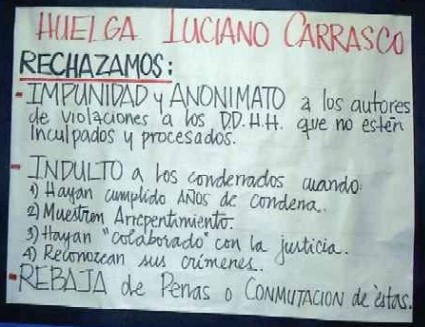 HUELGA LUCIANO CARRASCO
RECHAZAMOS:
- IMPUNIDAD y ANONIMATO a los autores
de violaciones a los DD.H.H. que no estén
inculpados y procesados.
- INDULTO a los condenados cuando:
1) Hayan cumplido AÑOS de condena.
2) Muestren Arrepentimiento.
3) Hayan "colaborado" con la justicia.
4) Reconozcan sus crímenes.
- REBAJA de Penas o CONMUTACION de éstas.